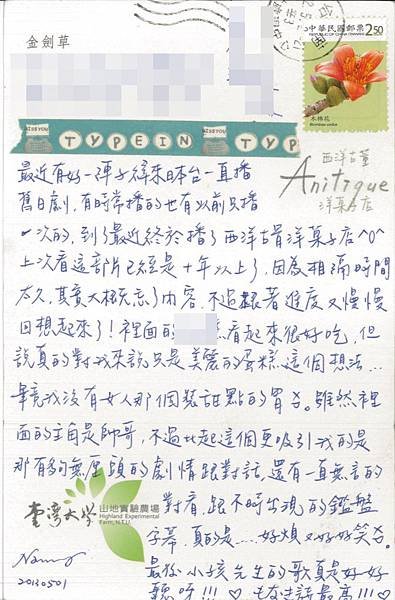 金劍草
中華民國郵票
REPUBLIC OF CHINA (TAIWAN)
2.50
木棉花
MISS YOU
TYPEIN
TYP
西洋古董
Antique
洋菓子店
最近有好一陣子緯來日本台一直播
舊日劇,有時常播的也有以前只播
一次的,到了最近終於播了西洋古董洋菓子店^0^
上次看這部片已經是十年以上了,因為相隔時間
太久,其實大概忘了內容,不過跟著進度又慢慢
回想起來了!裡面的 看起來很好吃,但
說真的對我來說只是美麗的蛋糕這個想法…
畢竟我沒有女人那個裝甜點的胃呀。雖然裡
面的主角是帥哥,不過比起這個更吸引我的是
那有夠無厘頭的劇情跟對話,還有一直無言的
對看,跟不時出現的鑑盤
字幕,真的是…好煩又好好笑呀。
最後小孩先生的歌真是好好
聽呀!!!♡ 最高!!!♡
臺灣大學
山地實驗農場
Highland Experimental
Farm, N.T.U.
20130501